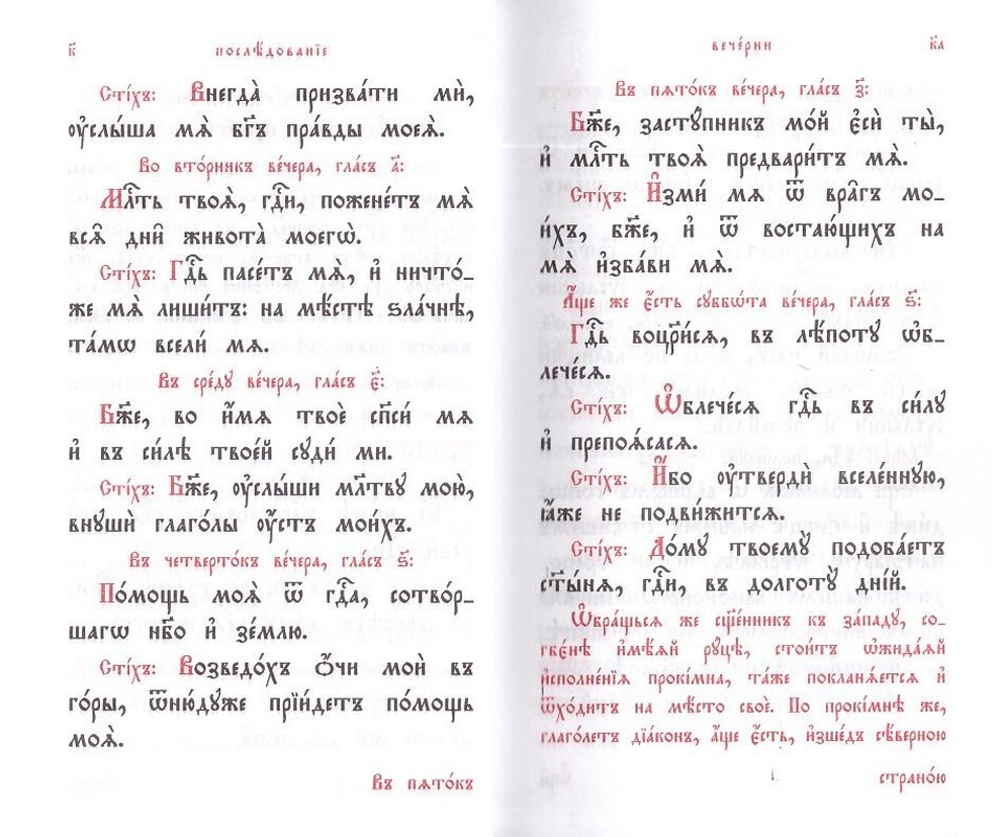 к҃
послѣ́дованїе
Стíхъ: Внегда̀ призва́ти мѝ,
ᲂу҆слы́ша мѧ̀ бг҃ъ пра́вды моеѧ̀.
Во вто́рникъ ве́чера, гла́съ а҃:
Млⷭ҇ть твоѧ̀, гдⷭ҇и, пожене́тъ мѧ̀
всѧ̑ дни̑ живота̀ моегѡ̀.
Стíхъ: Гдⷭ҇ь пасе́тъ мѧ̀, и҆ ничто́-
же мѧ̀ лиши́тъ: на мѣ́стѣ ѕла́чнѣ,
та́мѡ всели́ мѧ.
Въ сре́дꙋ ве́чера, гла́съ є҃:
Бж҃е, во и҆́мѧ твоѐ спⷭ҇и́ мѧ
и҆ въ си́лѣ твое́й сꙋди́ ми.
Стíхъ: Бж҃е, ᲂу҆слы́ши мл҃твꙋ мою̀,
внꙋшѝ глаго́лы ᲂу҆́стъ мои́хъ.
Въ четверто́къ ве́чера, гла́съ ѕ҃:
По́мощь моѧ̀ ѿ гдⷭ҇а, сотво́р-
шагѡ нб҃о и҆ зе́млю.
Стíхъ: Возведо́хъ ѻ҆́чи моѝ въ
го́ры, ѿню́дꙋже прїи́детъ по́мощь
моѧ̀.
Въ пѧто́къ
вече́рни
к҃а
Въ пѧто́къ ве́чера, гла́съ з҃:
Бж҃е, застꙋ́пникъ мо́й є҆сѝ ты̀,
и҆ млⷭ҇ть твоѧ̀ предвари́тъ мѧ̀.
Стíхъ: И҆зми́ мѧ ѿ вра̑гъ мо-
и́хъ, бж҃е, и҆ ѿ востаю́щихъ на
мѧ̀ и҆зба́ви мѧ̀.
А҆́ще же є҆́сть сꙋббѡ́та ве́чера, гла́съ ѕ҃:
Гдⷭ҇ь воцр҃и́сѧ, въ лѣ́потꙋ ѡ҆б-
лече́сѧ.
Стíхъ: Ѡ҆блече́сѧ гдⷭ҇ь въ си́лꙋ
и҆ препоѧ́сасѧ.
Стíхъ: И҆́бо ᲂу҆твердѝ вселе́ннꙋю,
ꙗ҆́же не подви́житсѧ.
Стíхъ: До́мꙋ твоемꙋ̀ подоба́етъ
ст҃ы́нѧ, гдⷭ҇и, въ долготꙋ̀ дні́й.
Ѡ҆бра́щьсѧ же сщ҃е́нникъ къ за́падꙋ, со-
гбє́нѣ и҆мѣ́ѧй рꙋ́цѣ, стои́тъ ѡ҆жида́ѧй
и҆сполне́нїѧ прокі́мна, та́же покланѧ́етсѧ и҆
ѿхо́дитъ на мѣ́сто своѐ. По прокі́мнѣ же,
глаго́летъ дїа́конъ, а҆́ще є҆́сть, и҆зше́дъ сѣ́верною
страно́ю